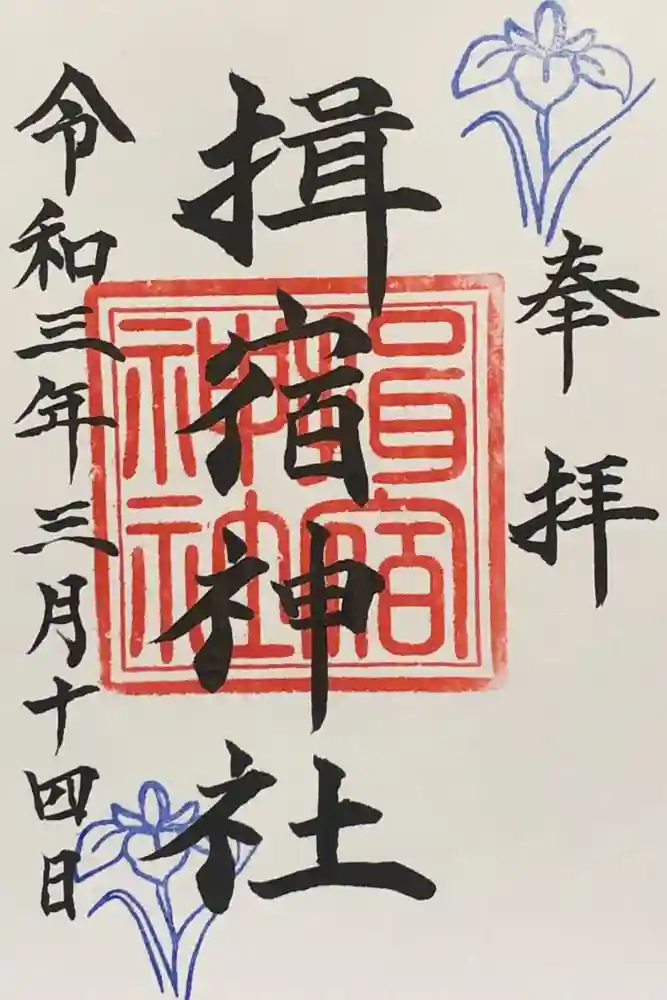 奉拝
揖宿神社
揖宿神社
令和三年三月十四日